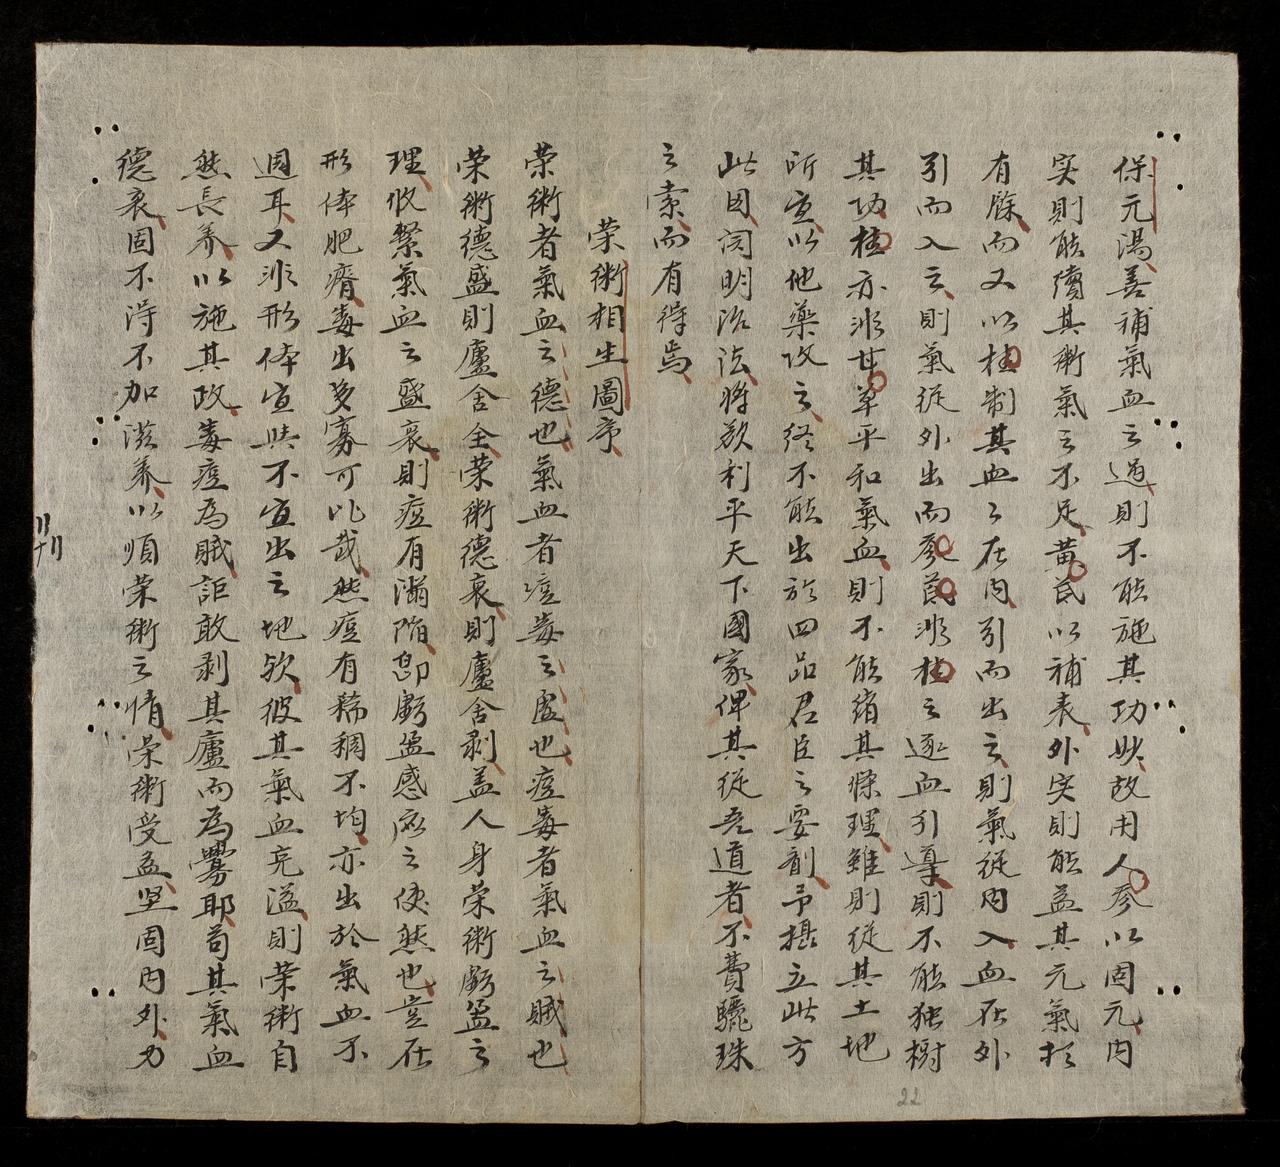 保元湯善補氣血之過則不能施其功妙故用人參以固元內
实則能續其衛氣之不足黃芪以補表外实則能益其元氣於
有餘而又以桂制其血〻在内引而出之則氣從内入血在外
引而入之則氣從外出而參芪非桂之逐血引導則不能独樹
其功桂亦非甘草平和氣血則不能緒其條理雖則從其土地
所宜以他藥攻之終不能出於四品君臣之要劑予攝立此方
此因詞明治法將欲利平天下國家俾其從吾道者不費驪珠
之索而有得焉
荣術相生圖序
荣術者氣血之德也氣血者痘毒之盧也痘毒者氣血之賊也
荣術德盛則廬舍全荣術德衰則廬舍剥盖人身荣術虧盈之
理收繫氣血之盛衰則痘有滿陷即虧盈感應之使然也豈在
形体肥瘠毒出多寡可比哉然痘有稀稠不均亦出於氣血不
週耳又非形体宜與不宜出之地欤彼其氣血充溢則荣術自
然長养以施其政毒痘為賊詎敢剥其廬而為釁耶苟其氣血
德衰固不得不加滋养以順荣術之情荣術受益坚固内外力
22